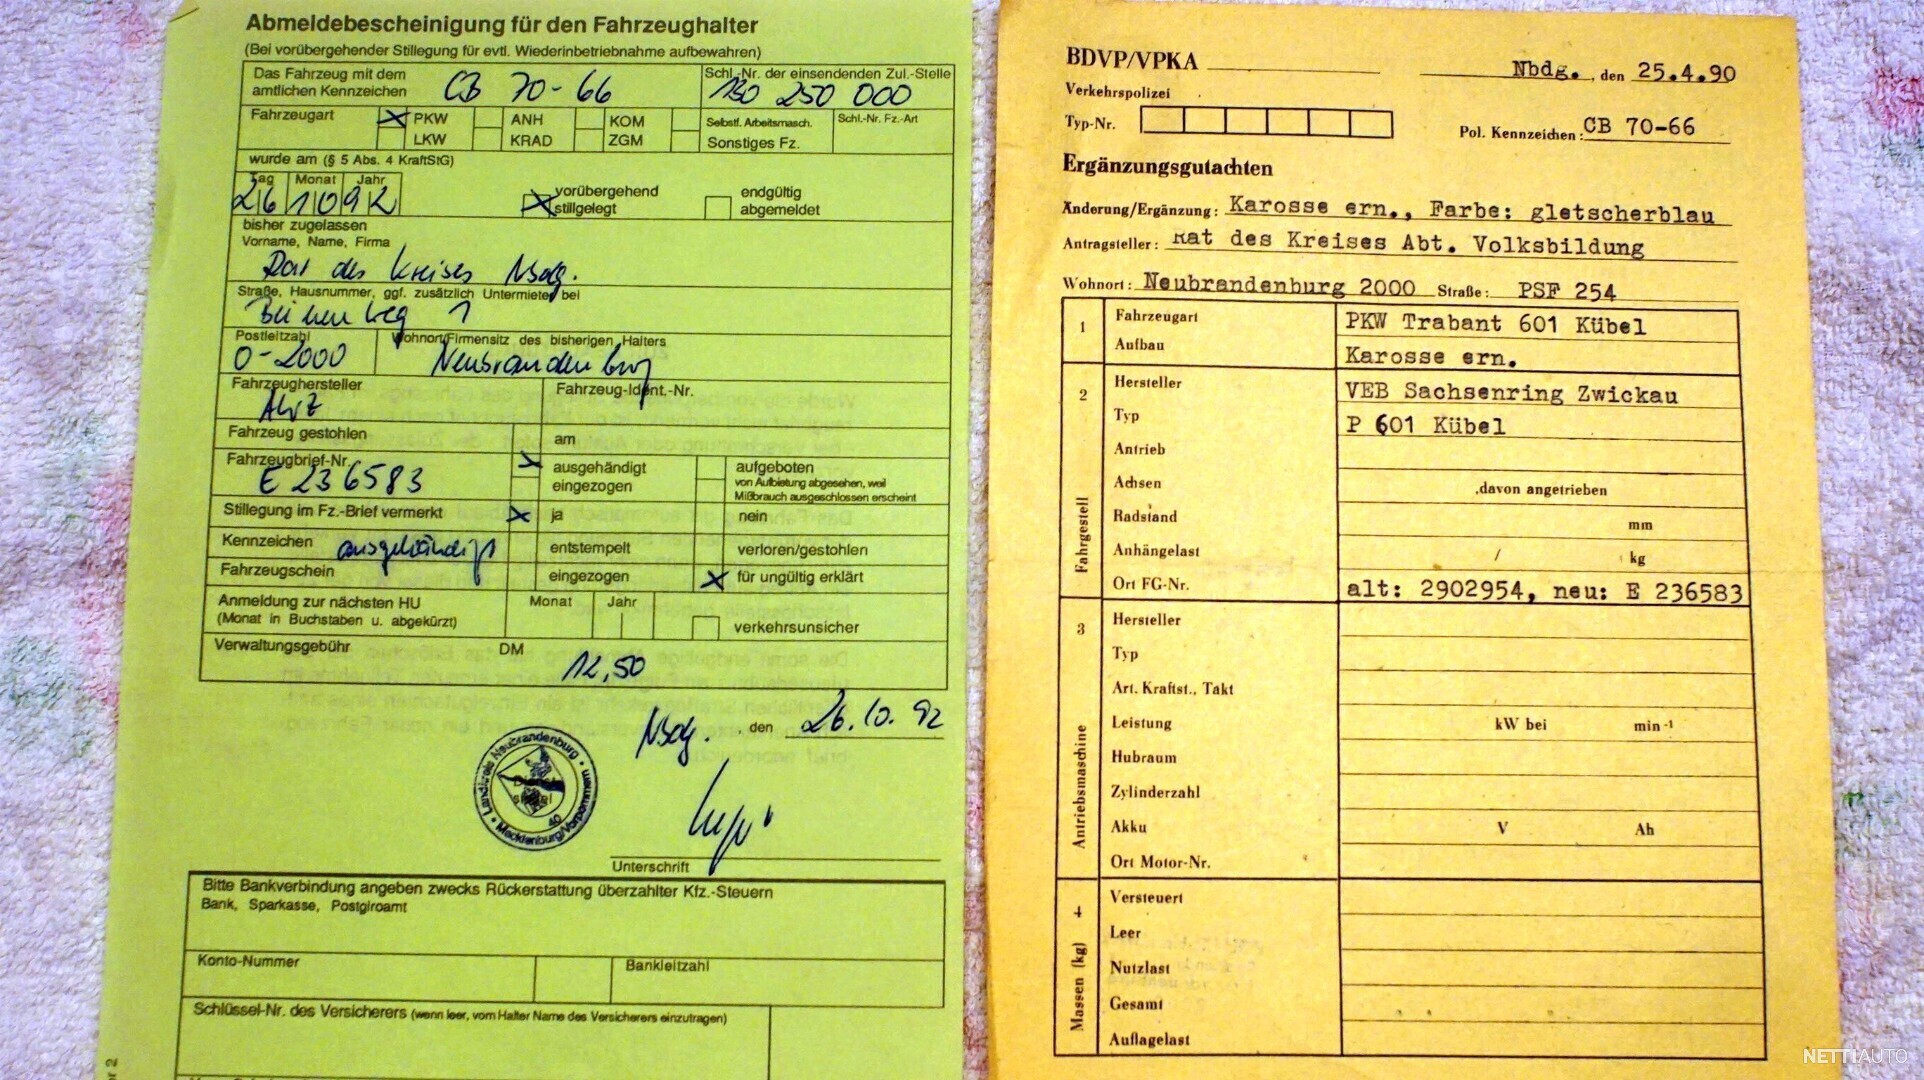 Abmeldebescheinigung für den Fahrzeughalter
(Bei vorübergehender Stillegung für evtl. Wiederinbetriebnahme aufbewahren)
Das Fahrzeug mit dem
amtlichen Kennzeichen CB 70-66
Schl.-Nr. der einsendenden Zul.-Stelle
130 250 000
Fahrzeugart
PKW ANH KOM Selbstf. Arbeitsmasch. Schl.-Nr. Fz.-Art
LKW KRAD ZGM Sonstiges Fz.
wurde am (§ 5 Abs. 4 KraftStG)
Tag Monat Jahr
26 10 92
vorübergehend
stillgelegt
endgültig
abgemeldet
bisher zugelassen
Vorname, Name, Firma
Rat des Kreises Nbdg.
Straße, Hausnummer, ggf. zusätzlich Untermieter bei
Weg 1
Postleitzahl Wohnort/Firmensitz des bisherigen Halters
0-2000 Neubrandenburg
Fahrzeughersteller Fahrzeug-Ident.-Nr.
Fahrzeug gestohlen am
Fahrzeugbrief-Nr.
E 236583
ausgehändigt
eingezogen
aufgeboten
von Aufbietung abgesehen, weil
Mißbrauch ausgeschlossen erscheint
Stillegung im Fz.-Brief vermerkt ja nein
Kennzeichen ausgehändigt entstempelt verloren/gestohlen
Fahrzeugschein eingezogen für ungültig erklärt
Anmeldung zur nächsten HU Monat Jahr
(Monat in Buchstaben u. abgekürzt) verkehrsunsicher
Verwaltungsgebühr DM 12,50
Nbdg. den 26.10.92
Landkreis Neubrandenburg
Dienst
siegel
40
Mecklenburg/Vorpommern
Unterschrift
Bitte Bankverbindung angeben zwecks Rückerstattung überzahlter Kfz.-Steuern
Bank, Sparkasse, Postgiroamt
Konto-Nummer Bankleitzahl
Schlüssel-Nr. des Versicherers (wenn leer, vom Halter Name des Versicherers einzutragen)
BDVP/VPKA Nbdg. , den 25.4.90
Verkehrspolizei
Typ-Nr. Pol. Kennzeichen: CB 70-66
Ergänzungsgutachten
Änderung/Ergänzung: Karosse ern., Farbe: gletscherblau
Antragsteller: Rat des Kreises Abt. Volksbildung
Wohnort: Neubrandenburg 2000 Straße: PSF 254
1 Fahrzeugart PKW Trabant 601 Kübel
Aufbau Karosse ern.
2 Hersteller VEB Sachsenring Zwickau
Typ P 601 Kübel
Antrieb
Achsen ,davon angetrieben
Radstand mm
Anhängelast / kg
Ort FG-Nr. alt: 2902954, neu: E 236583
Fahrgestell
3 Hersteller
Typ
Art. Kraftst., Takt
Leistung kW bei min-1
Hubraum
Zylinderzahl
Akku V Ah
Ort Motor-Nr.
Antriebsmaschine
4 Versteuert
Leer
Nutzlast
Gesamt
Auflagelast
Massen (kg)
NETTIAUTO